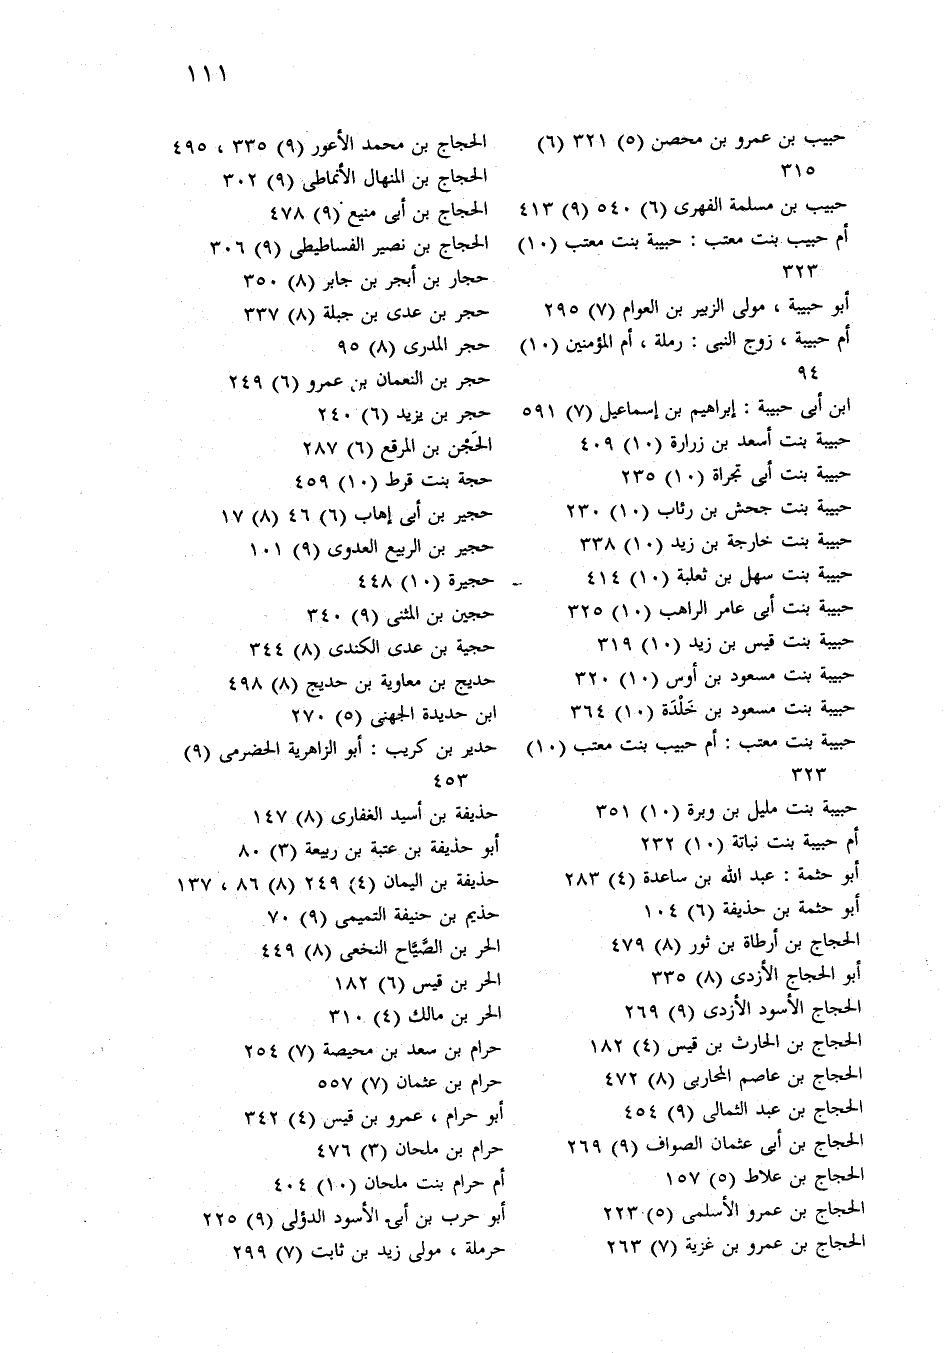 ١١١
حبيب بن عمرو بن محصن (٥) ٣٢١ (٦)
٣١٥
حبيب بن مسلمة الفهرى (٦) ٥٤٠ (٩) ٤١٣
أم حبيب بنت معتب : حبيبة بنت معتب (١٠)
٣٢٣
أبو حبيبة ، مولى الزبير بن العوام (٧) ٢٩٥
أم حبيبة ، زوج النبى : رملة ، أم المؤمنين (١٠)
٩٤
ابن أبى حبيبة : إبراهيم بن إسماعيل (٧) ٥٩١
حبيبة بنت أسعد بن زرارة (١٠) ٤٠٩
حبيبة بنت أبى تجراة (١٠) ٢٣٥
حبيبة بنت جحش بن رئاب (١٠) ٢٣٠
حبيبة بنت خارجة بن زيد (١٠) ٣٣٨
حبيبة بنت سهل بن ثعلبة (١٠) ٤١٤
حبيبة بنت أبى عامر الراهب (١٠) ٣٢٥
حبيبة بنت قيس بن زيد (١٠) ٣١٩
حبيبة بنت مسعود بن أوس (١٠) ٣٢٠
حبيبة بنت مسعود بن خَلْدَة (١٠) ٣٦٤
حبيبة بنت معتب : أم حبيب بنت معتب (١٠)
٣٢٣
حبيبة بنت مليل بن وبرة (١٠) ٣٥١
أم حبيبة بنت نباتة (١٠) ٢٣٢
أبو حثمة : عبد الله بن ساعدة (٤) ٢٨٣
أبو حثمة بن حذيفة (٦) ١٠٤
الحجاج بن أرطاة بن ثور (٨) ٤٧٩
أبو الحجاج الأزدى (٨) ٣٣٥
الحجاج الأسود الأزدى (٩) ٢٦٩
الحجاج بن الحارث بن قيس (٤) ١٨٢
الحجاج بن عاصم المحاربى (٨) ٤٧٢
الحجاج بن عبد الثمالى (٩) ٤٥٤
الحجاج بن أبى عثمان الصواف (٩) ٢٦٩
الحجاج بن علاط (٥) ١٥٧
الحجاج بن عمرو الأسلمى (٥) ٢٢٣
الحجاج بن عمرو بن غزية (٧) ٢٦٣
الحجاج بن محمد الأعور (٩) ٣٣٥ ، ٤٩٥
الحجاج بن المنهال الأنماطى (٩) ٣٠٢
الحجاج بن أبى منيع (٩) ٤٧٨
الحجاج بن نصير الفساطيطى (٩) ٣٠٦
حجار بن أبجر بن جابر (٨) ٣٥٠
حجر بن عدى بن جبلة (٨) ٣٣٧
حجر المدرى (٨) ٩٥
حجر بن النعمان بن عمرو (٦) ٢٤٩
حجر بن يزيد (٦) ٢٤٠
الحَجْن بن المرقع (٦) ٢٨٧
حجة بنت قرط (١٠) ٤٥٩
حجير بن أبى إهاب (٦) ٤٦ (٨) ١٧
حجير بن الربيع العدوى (٩) ١٠١
حجيرة (١٠) ٤٤٨
حجين بن المثنى (٩) ٣٤٠
حجية بن عدى الكندى (٨) ٣٤٤
حديج بن معاوية بن حديج (٨) ٤٩٨
ابن حديدة الجهنى (٥) ٢٧٠
حدير بن كريب : أبو الزاهرية الحضرمى (٩)
٤٥٣
حذيفة بن أسيد الغفارى (٨) ١٤٧
أبو حذيفة بن عتبة بن ربيعة (٣) ٨٠
حذيفة بن اليمان (٤) ٢٤٩ (٨) ٨٦ ، ١٣٧
حذيم بن حنيفة التميمى (٩) ٧٠
الحر بن الصَّيَّاح النخعى (٨) ٤٤٩
الحر بن قيس (٦) ١٨٢
الحر بن مالك (٤) ٣١٠
حرام بن سعد بن محيصة (٧) ٢٥٤
حرام بن عثمان (٧) ٥٥٧
أبو حرام ، عمرو بن قيس (٤) ٣٤٢
حرام بن ملحان (٣) ٤٧٦
أم حرام بنت ملحان (١٠) ٤٠٤
أبو حرب بن أبى الأسود الدؤلى (٩) ٢٢٥
حرملة ، مولى زيد بن ثابت (٧) ٢٩٩